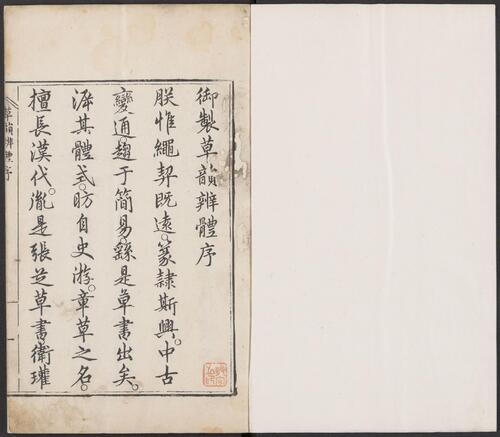 御製草韻辨體序
朕惟繩契既遠。篆隸斯興。中古
變通。趨于簡易。繇是草書出矣。
溯其體式。昉自史游。章草之名。
擅長漢代。胤是張芝草書衛瓘
草韻辨體序